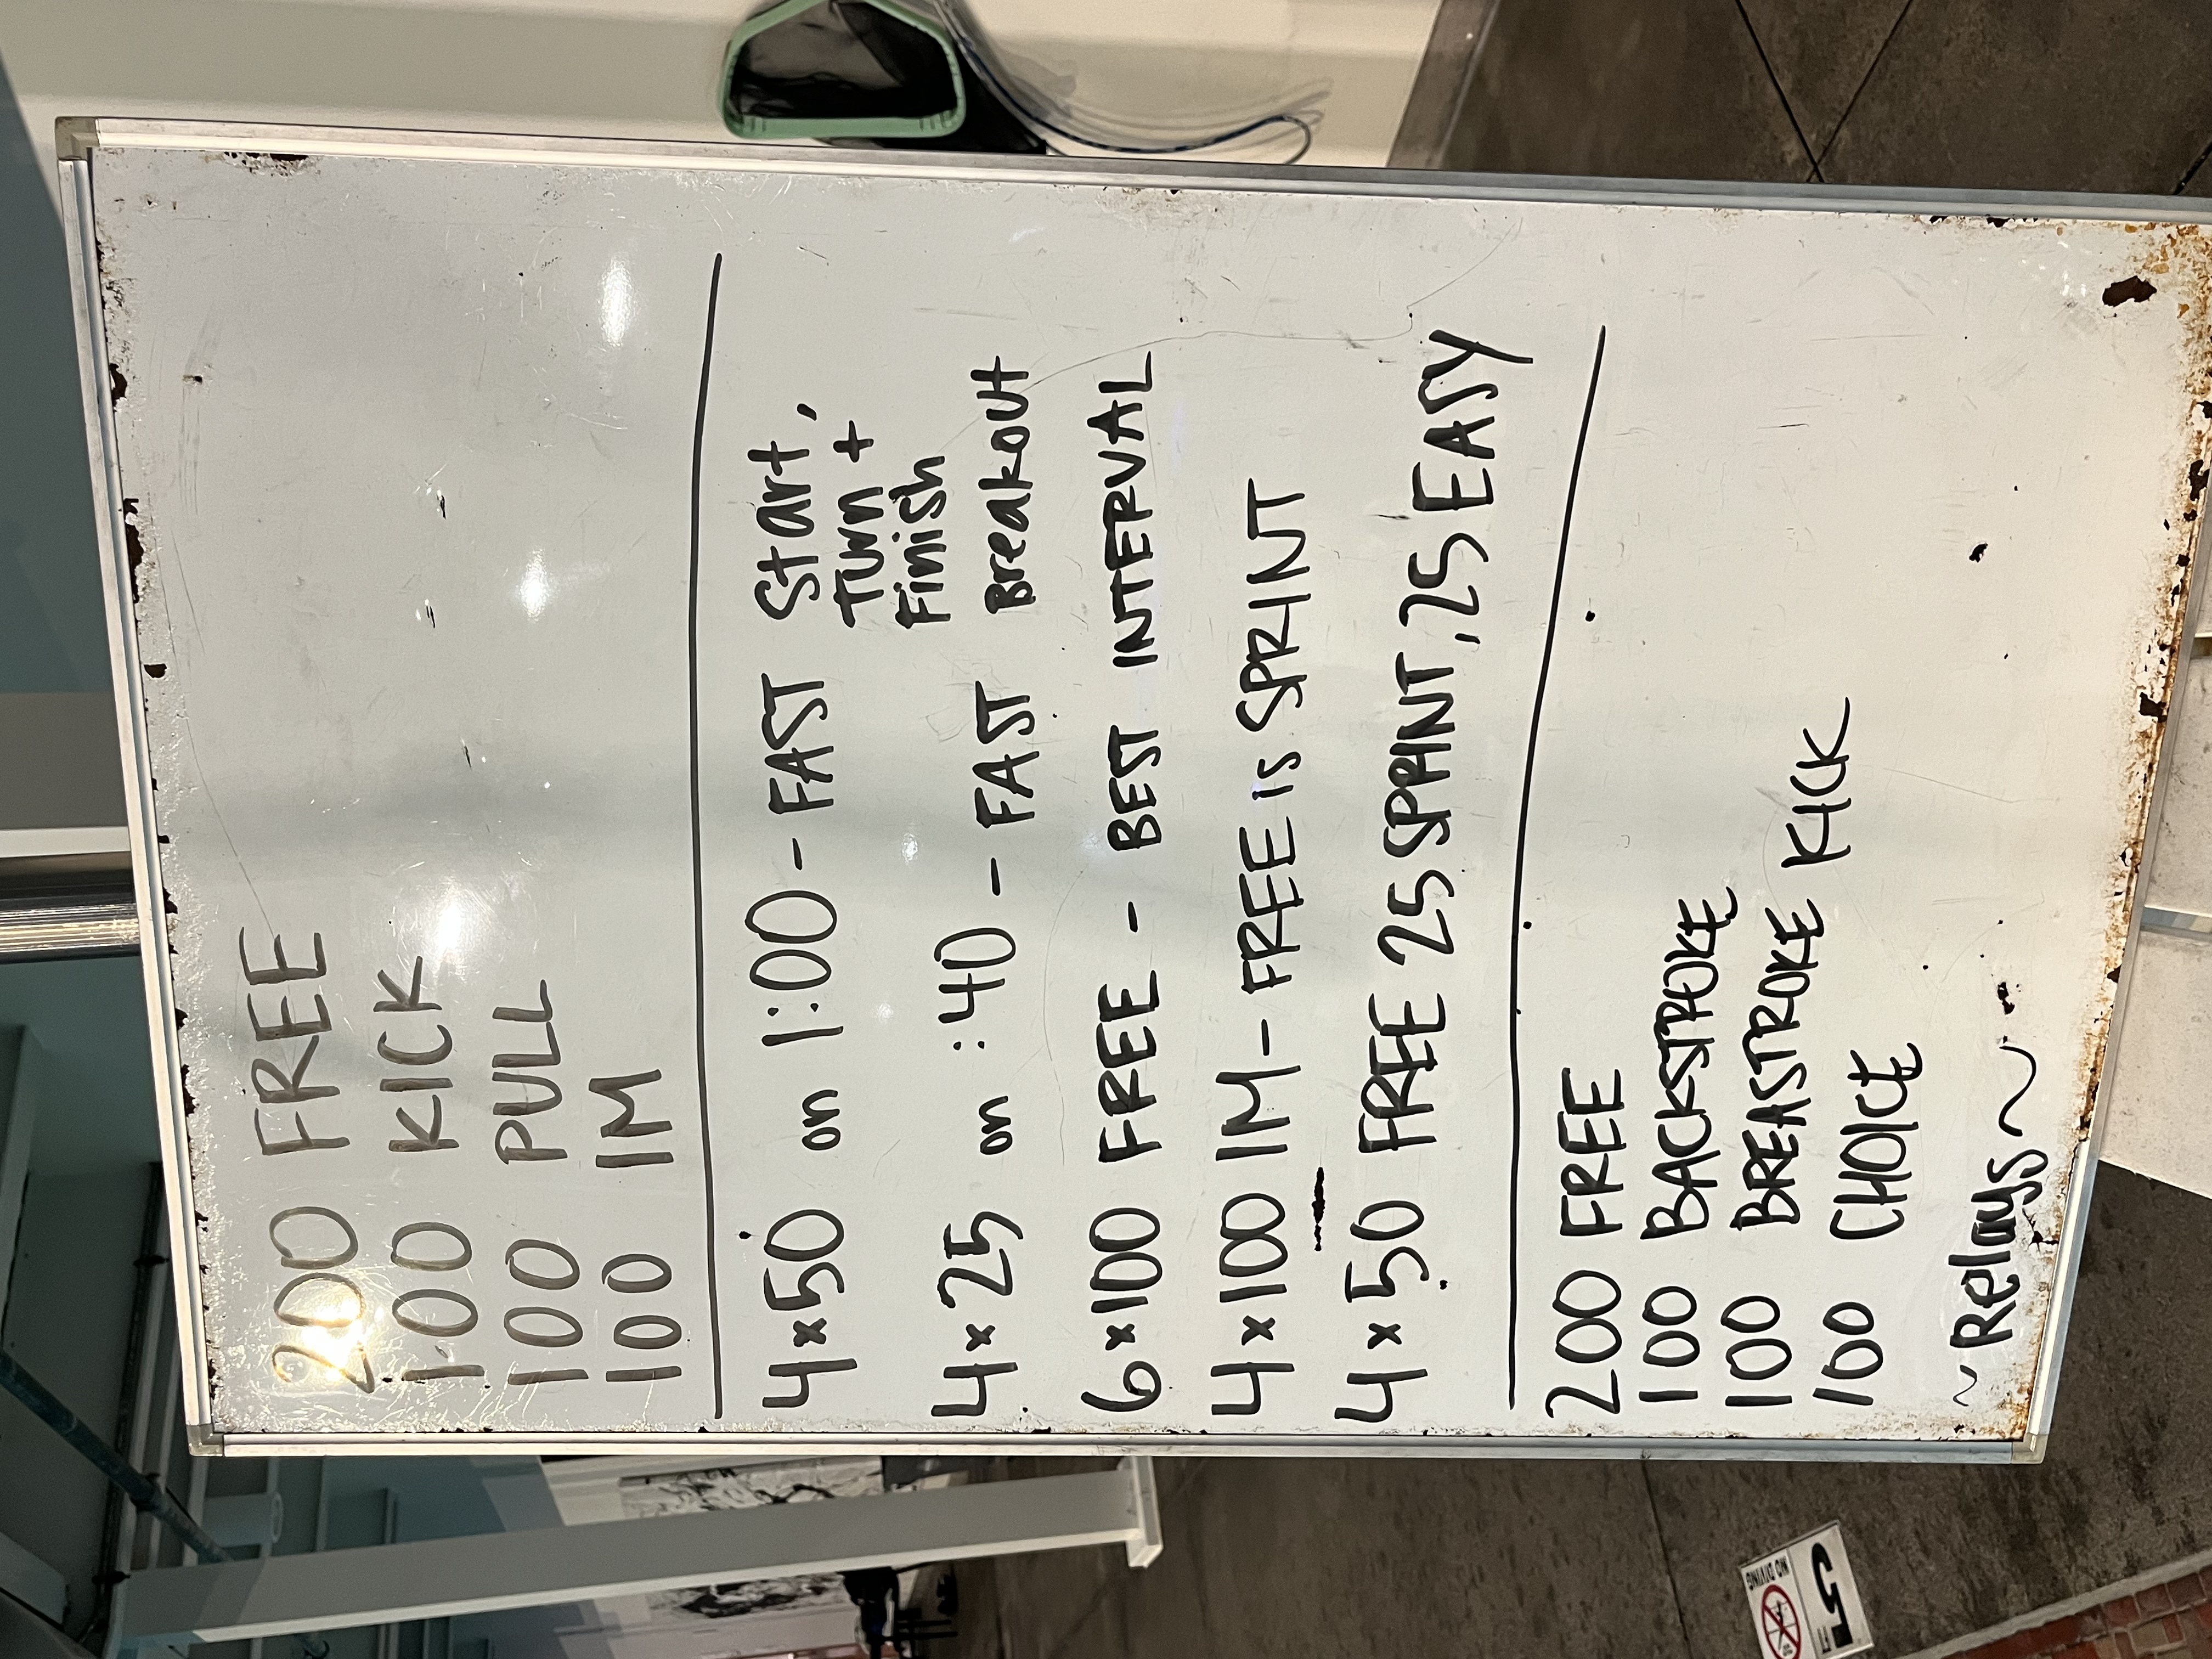 200 FREE
100 KICK
100 PULL
100 IM
4x50 on 1:00 - FAST Start,
Turn +
Finish
4x25 on :40 - FAST Breakout
6x100 FREE - BEST INTERVAL
4x100 IM - FREE is SPRINT
4x50 FREE 25 SPRINT, 25 EASY
200 FREE
100 BACKSTROKE
100 BREASTROKE KICK
100 CHOICE
~Relays~
5 FT
NO DIVING